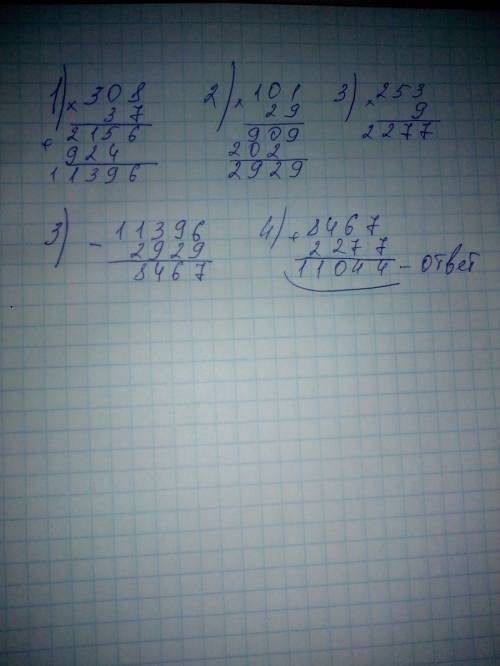 1) × 308 2) × 101 3) × 253
37 29 9
2156 909 2277
+ 924 202
11396 2929
3) - 11396 4) + 8467
2929 2277
8467 11044 - ответ